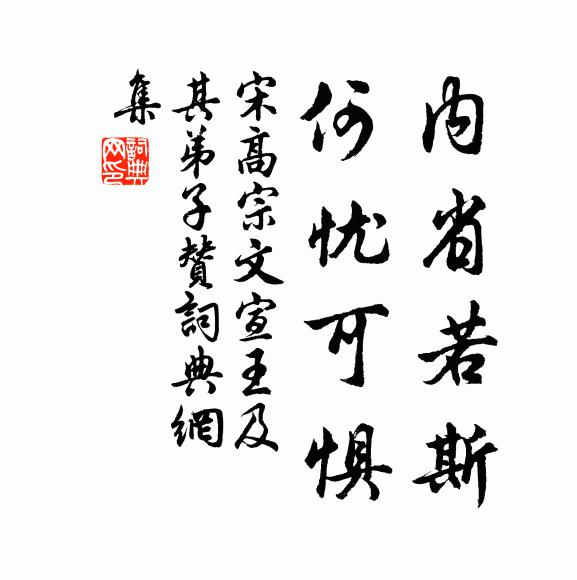 内省若斯
何忧可惧
宋高宗文宣王及
其弟子贊詞典網
集
詞典
网印